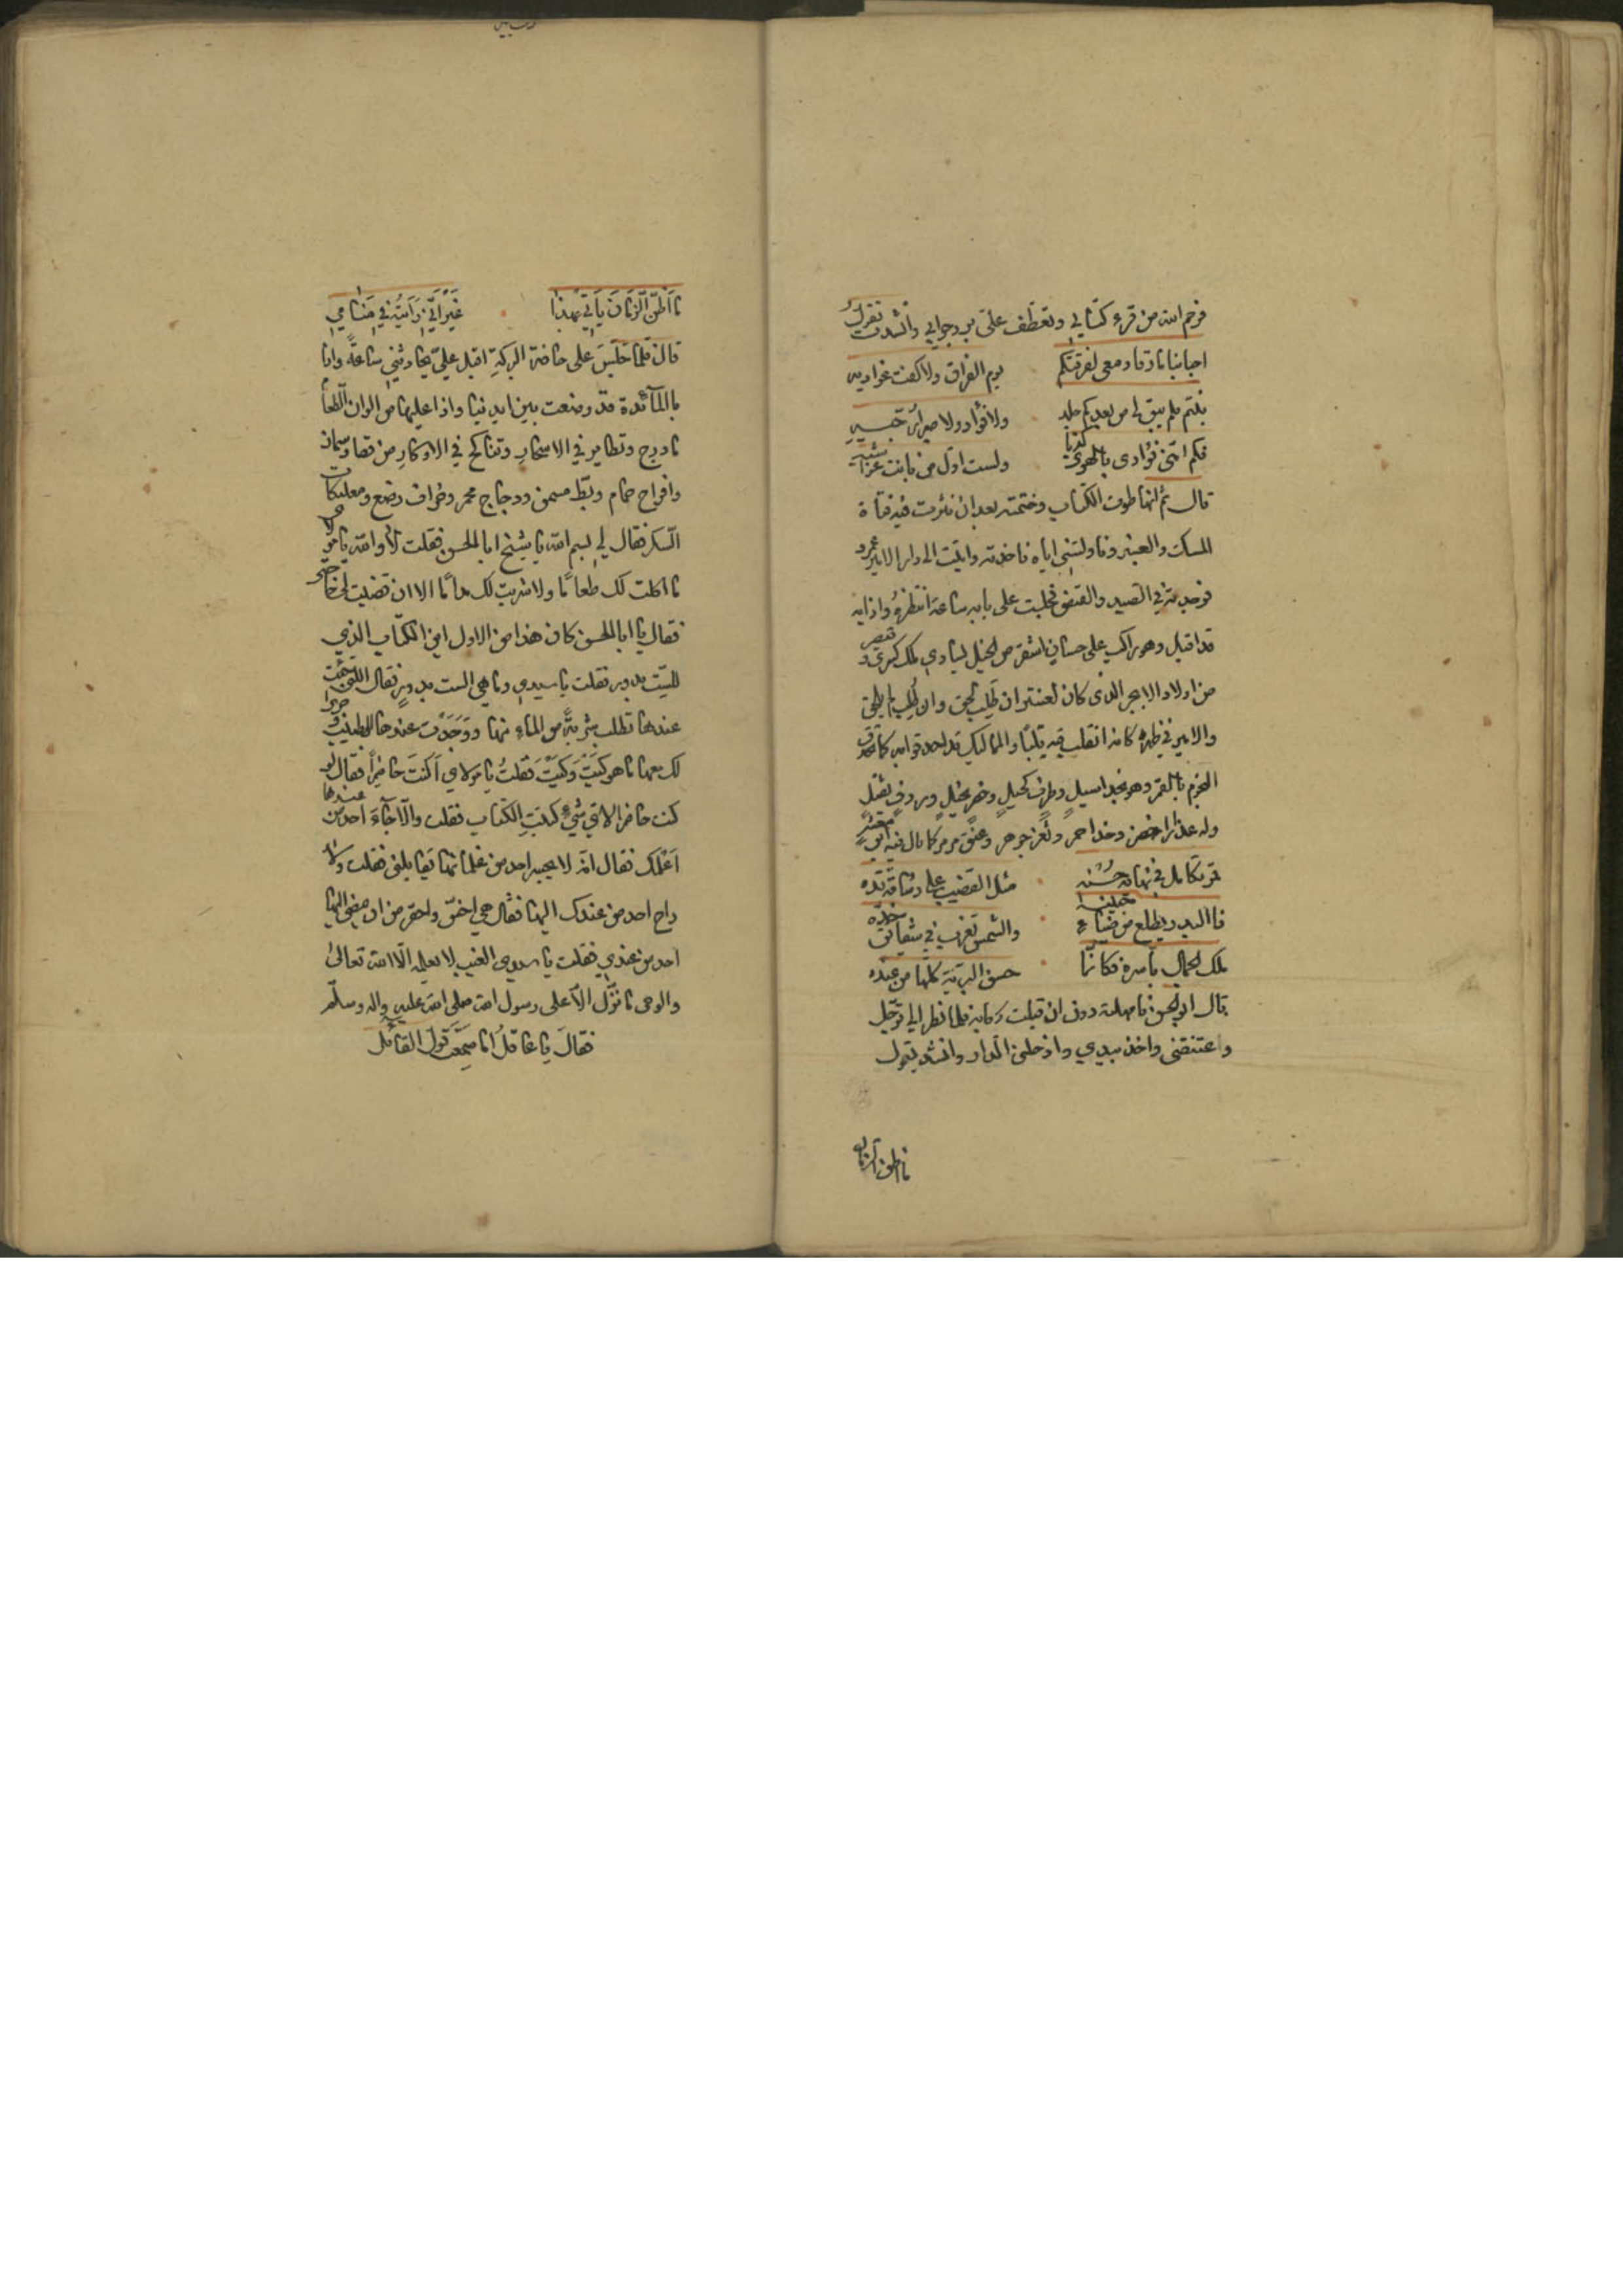 فرحم الله من قرء كتابي وتعطف علي برد جوابي وانشدت تقول
احبابنا ما رقا دمعى لفرقتكم يوم الفراق ولا كفت غواديه
بنتم فلم يبق لى من بعدكم جلد ولا فؤاد ولا صبر
فكم اتمنى فؤادى بالهوى كذبا ولست اول من بانت
قال ثم انها طوت الكتاب وختمته بعد ان نثرت فيه فتاة
المسك والعنبر وناولتنى اياه فاخذته واتيت الى دار الامير عمرو
فوجدته في الصيد والقنص فجلست على بابه ساعة انتظره واذا به
قد اقبل وهو راكب على حصان اشقر من الخيل يساوي ملك كسرى وقيصر
من اولاد الابجر الذى كان لعنتر ان طلب لحق وان طلب لم يلحق
والامير في ظهره كانه والمماليك قد احدقوا به كما تحدق
النجوم بالقمر وهو بخد اسيل وطرف كحيل وخصر نحيل وردف ثقيل
وله عذار اخضر وخد احمر وثغر جوهر وعنق مرمر كما قال فيه
قمر تكامل في نهاية حسنه مثل القضيب على رشاقة قده
فالبدر يطلع من ضياء جبينه والشمس تغرب في شقائق خده
ملك الجمال بأسره فكانما حسن البرية كلها من عنده
قال ابو الحسن فما مهلته دون ان قبلت ركابه فلما نظر الي ترجل
واعتنقني واخذ بيدي وادخلنى الدار وانشد يقول
ما اظن الزمان
ما اظن الزمان يأتي بهذا غير اني رأيته في منامي
قال فلما جلس على حافة البركة اقبل علي يحادثني ساعة واذا
بالمآئدة قد وضعت بين ايدينا واذا عليها من الوان الطعام
ما درج وتطاير في الاسحار وتناكح في الاوكار من قطا وسمان
وافراخ حمام وبط مسمن ودجاج محمر وخراف رضع ومعلبكات
السكر فقال لي بسم الله يا شيخ ابا الحسن فقلت لا والله يا مولاي
ما اكلت لك طعاما ولا شربت لك ماء الا ان قضيت لى حاجتي
فقال يا ابا الحسن كان هذا من الاول اين الكتاب الذي
للست بدور فقلت يا سيدي وما هي الست بدور فقال التى جئت
عندها تطلب شربة من الماء منها ووجدت عندها وجرا
لك معها ما هو كيت وكيت فقلت يا مولاي اكنت حاضرا فقال لو
كنت حاضرا لاي شيء كتبت الكتاب فقلت والا جاء احد من عندها
اعلمك فقال انه لا يجير احد من غلمانها يقابلنى فقلت ولا
راح احد من عندك اليها فقال هي اخس واحقر من ان يمضى اليها
احد من عندي فقلت يا سيدى الغيب لا يعلمه الا الله تعالى
والوحى ما نزل الا على رسول الله صلى الله عليه واله وسلم
فقال يا عاقل اما سمعت قول القائل